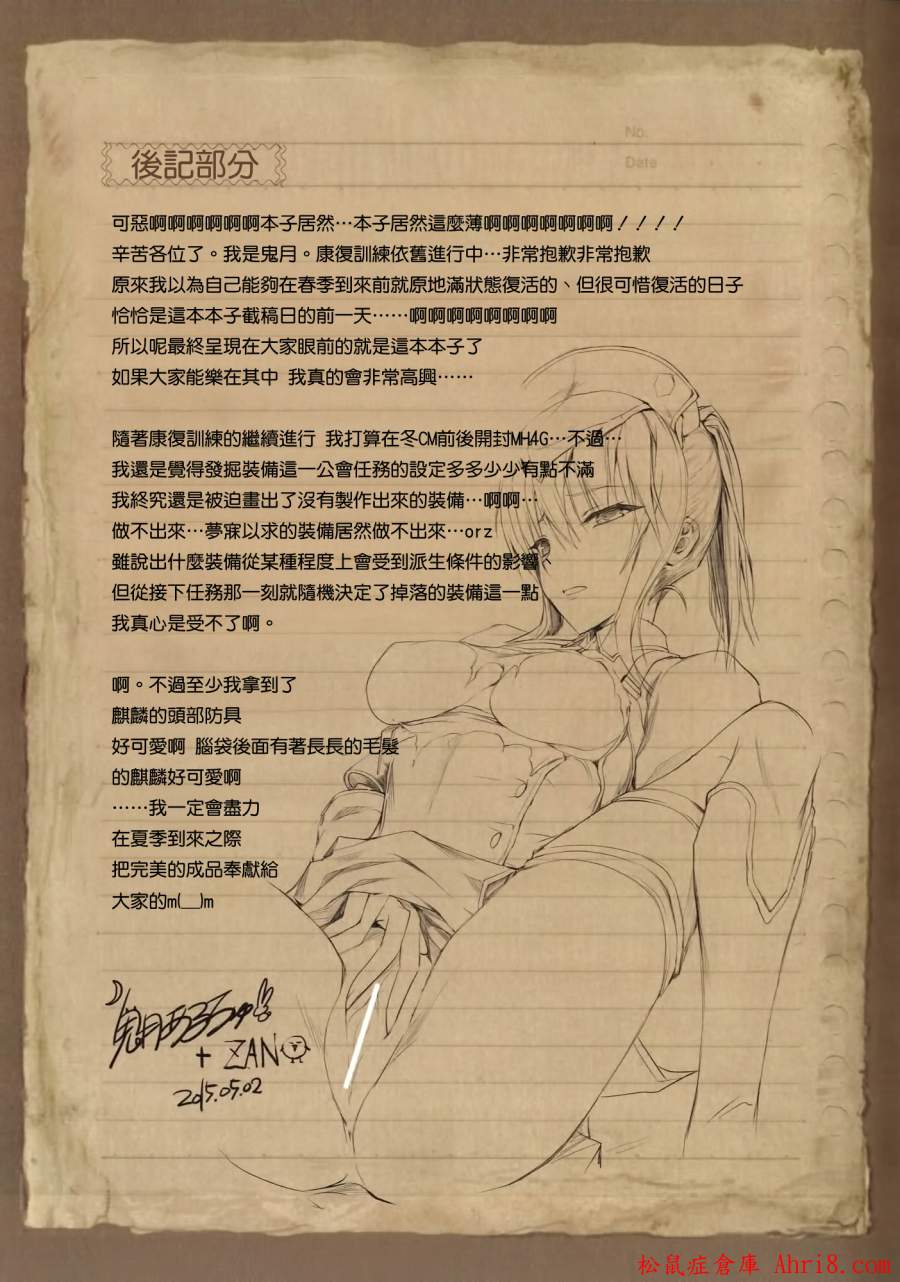 No.
Date
後記部分
可惡啊啊啊啊啊啊本子居然…本子居然這麼薄啊啊啊啊啊啊啊！！！！
辛苦各位了。我是鬼月。康復訓練依舊進行中…非常抱歉非常抱歉
原來我以為自己能夠在春季到來前就原地滿狀態復活的、但很可惜復活的日子
恰恰是這本本子截稿日的前一天……啊啊啊啊啊啊啊啊
所以呢最終呈現在大家眼前的就是這本本子了
如果大家能樂在其中 我真的會非常高興……
隨著康復訓練的繼續進行 我打算在冬CM前後開封MH4G…不過…
我還是覺得發掘裝備這一公會任務的設定多多少少有點不滿
我終究還是被迫畫出了沒有製作出來的裝備…啊啊…
做不出來…夢寐以求的裝備居然做不出來…orz
雖說出什麼裝備從某種程度上會受到派生條件的影響、
但從接下任務那一刻就隨機決定了掉落的裝備這一點
我真心是受不了啊。
啊。不過至少我拿到了
麒麟的頭部防具
好可愛啊 腦袋後面有著長長的毛髮
的麒麟好可愛啊
……我一定會盡力
在夏季到來之際
把完美的成品奉獻給
大家的m(__)m
鬼月あるちゅ
+ ZAN
2015.05.02
松鼠症倉庫 Ahri8.com